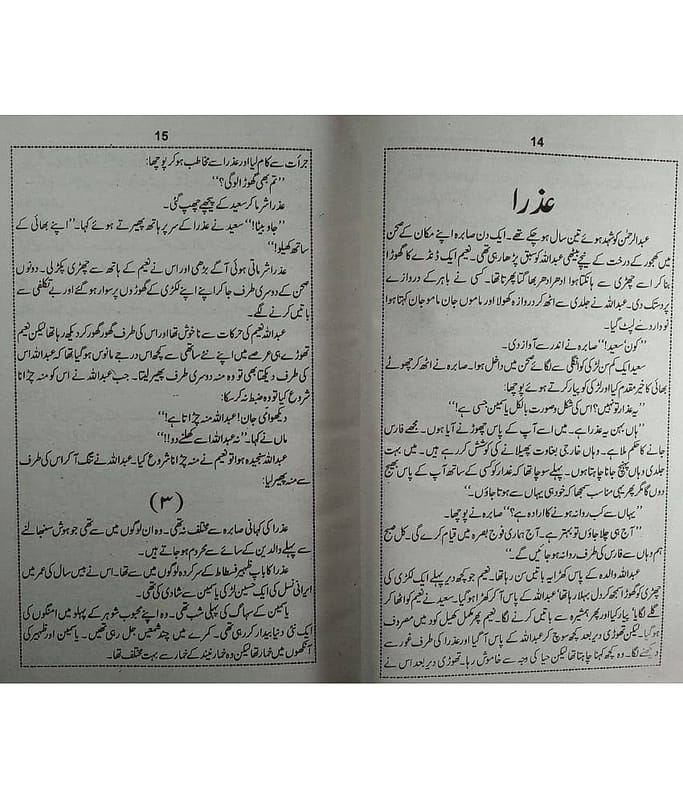 14
عذرا
عبدالرحمٰن کو شہید ہوئے تین سال ہو چکے تھے۔ ایک دن صابرہ اپنے مکان کے صحن
میں کھجور کے درخت کے نیچے بیٹھی عبداللہ کو سبق پڑھا رہی تھی۔ نعیم ایک ڈنڈے کا گھوڑا
بنا کر اسے چھڑی سے ہانکتا ہوا ادھر ادھر بھاگتا پھرتا تھا۔ کسی نے باہر کے دروازے
پر دستک دی۔ عبداللہ نے جلدی سے اٹھ کر دروازہ کھولا اور ماموں جان ماموں جان کہتا ہوا
نووارد سے لپٹ گیا۔
”کون‘ سعید!“ صابرہ نے اندر سے آواز دی۔
سعید ایک کم سن لڑکی کو انگلی سے لگائے صحن میں داخل ہوا۔ صابرہ نے اٹھ کر چھوٹے
بھائی کا خیر مقدم کیا اور لڑکی کو پیار کرتے ہوئے پوچھا:
”یہ عذرا تو نہیں؟ اس کی شکل و صورت بالکل یاسمین جیسی ہے!“
”ہاں بہن یہ عذرا ہے۔ میں اسے آپ کے پاس چھوڑنے آیا ہوں۔ مجھے فارس
جانے کا حکم ملا ہے۔ وہاں خارجی بغاوت پھیلانے کی کوشش کر رہے ہیں۔ میں بہت
جلدی وہاں پہنچ جانا چاہتا ہوں۔ پہلے سوچا تھا کہ عذرا کو کسی کے ساتھ آپ کے پاس بھیج
دوں گا مگر پھر یہی مناسب سمجھا کہ خود ہی یہاں سے ہوتا جاؤں۔“
”یہاں سے کب روانہ ہونے کا ارادہ ہے؟“ صابرہ نے پوچھا۔
”آج ہی چلا جاؤں تو بہتر ہے۔ آج ہماری فوج بصرہ میں قیام کرے گی۔ کل صبح
ہم وہاں سے فارس کی طرف روانہ ہو جائیں گے۔“
عبداللہ والدہ کے پاس کھڑا یہ باتیں سن رہا تھا۔ نعیم جو کچھ دیر پہلے ایک لکڑی کی
چھڑی کو گھوڑا سمجھ کر دل بہلا رہا تھا عبداللہ کے پاس آ کر کھڑا ہو گیا۔ سعید نے نعیم کو اٹھا کر
گلے لگایا‘ پیار کیا اور پھر ہمشیرہ سے باتیں کرنے لگا۔ نعیم پھر کھیل کود میں مصروف
ہو گیا۔ لیکن تھوڑی دیر بعد کچھ سوچ کر عبداللہ کے پاس آ گیا اور عذرا کی طرف غور سے
دیکھنے لگا۔ وہ کچھ کہنا چاہتا تھا لیکن حیا کی وجہ سے خاموش رہا۔ تھوڑی دیر بعد اس نے
15
جرأت سے کام لیا اور عذرا سے مخاطب ہو کر پوچھا:
”تم بھی گھوڑا لو گی؟“
عذرا شرما کر سعید کے پیچھے چھپ گئی۔
”جاؤ بیٹا!“ سعید نے عذرا کے سر پر ہاتھ پھیرتے ہوئے کہا۔ ”اپنے بھائی کے
ساتھ کھیلو!“
عذرا شرماتی ہوئی آگے بڑھی اور اس نے نعیم کے ہاتھ سے چھڑی پکڑ لی۔ دونوں
صحن کے دوسری طرف جا کر اپنے اپنے لکڑی کے گھوڑوں پر سوار ہو گئے اور بے تکلفی سے
باتیں کرنے لگے۔
عبداللہ نعیم کی حرکات سے ناخوش تھا اور اس کی طرف گھور گھور کر دیکھ رہا تھا لیکن نعیم
تھوڑے ہی عرصے میں اپنے نئے ساتھی سے کچھ اس درجے مانوس ہو گیا تھا کہ عبداللہ اس
کی طرف دیکھتا بھی تو وہ منہ دوسری طرف پھیر لیتا۔ جب عبداللہ نے اس کو منہ چڑانا
شروع کیا تو وہ ضبط نہ کر سکا:
دیکھو امی جان! عبداللہ منہ چڑاتا ہے!“
ماں نے کہا۔ ”نہ عبداللہ اسے کھیلنے دو!!“
عبداللہ سنجیدہ ہوا تو نعیم نے منہ چڑانا شروع کیا۔ عبداللہ نے تنگ آ کر اس کی طرف
سے منہ پھیر لیا:
(۳)
عذرا کی کہانی صابرہ سے مختلف نہ تھی۔ وہ ان لوگوں میں سے تھی جو ہوش سنبھالنے
سے پہلے والدین کے سائے سے محروم ہو جاتے ہیں۔
عذرا کا باپ ظہیر فسطاط کے سرکردہ لوگوں میں سے تھا۔ اس نے بیس سال کی عمر میں
ایرانی نسل کی ایک حسین لڑکی یاسمین سے شادی کی تھی۔
یاسمین کے سہاگ کی پہلی شب تھی۔ وہ اپنے محبوب شوہر کے پہلو میں امنگوں کی
ایک نئی دنیا بیدار کر رہی تھی۔ کمرے میں چند شمعیں جل رہی تھیں۔ یاسمین اور ظہیر کی
آنکھوں میں خمار تھا لیکن وہ خمار نیند کے خمار سے بہت مختلف تھا۔